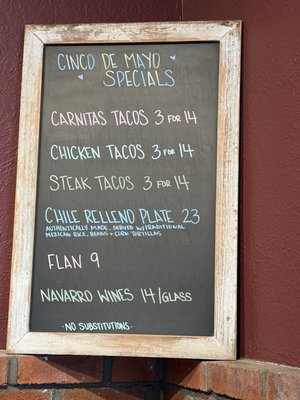 CINCO DE MAYO
SPECIALS
CARNITAS TACOS 3 FOR 14
CHICKEN TACOS 3 FOR 14
STEAK TACOS 3 FOR 14
CHILE RELLENO PLATE 23
AUTHENTICALLY MADE, SERVED W/TRADITIONAL
MEXICAN RICE, BEANS + CORN TORTILLAS
FLAN 9
NAVARRO WINES 14/GLASS
·NO SUBSTITUTIONS·